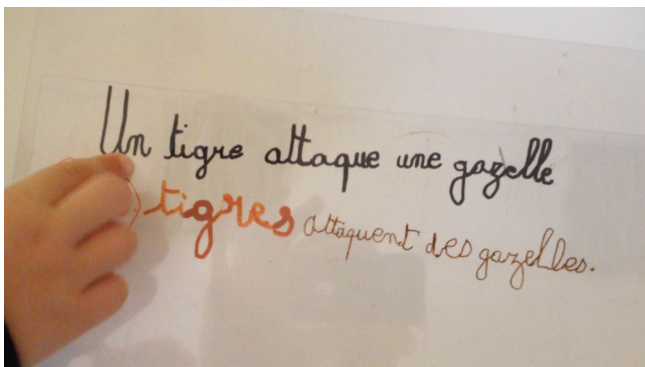 Un tigre attaque une gazelle
tigres attaquent des gazelles.